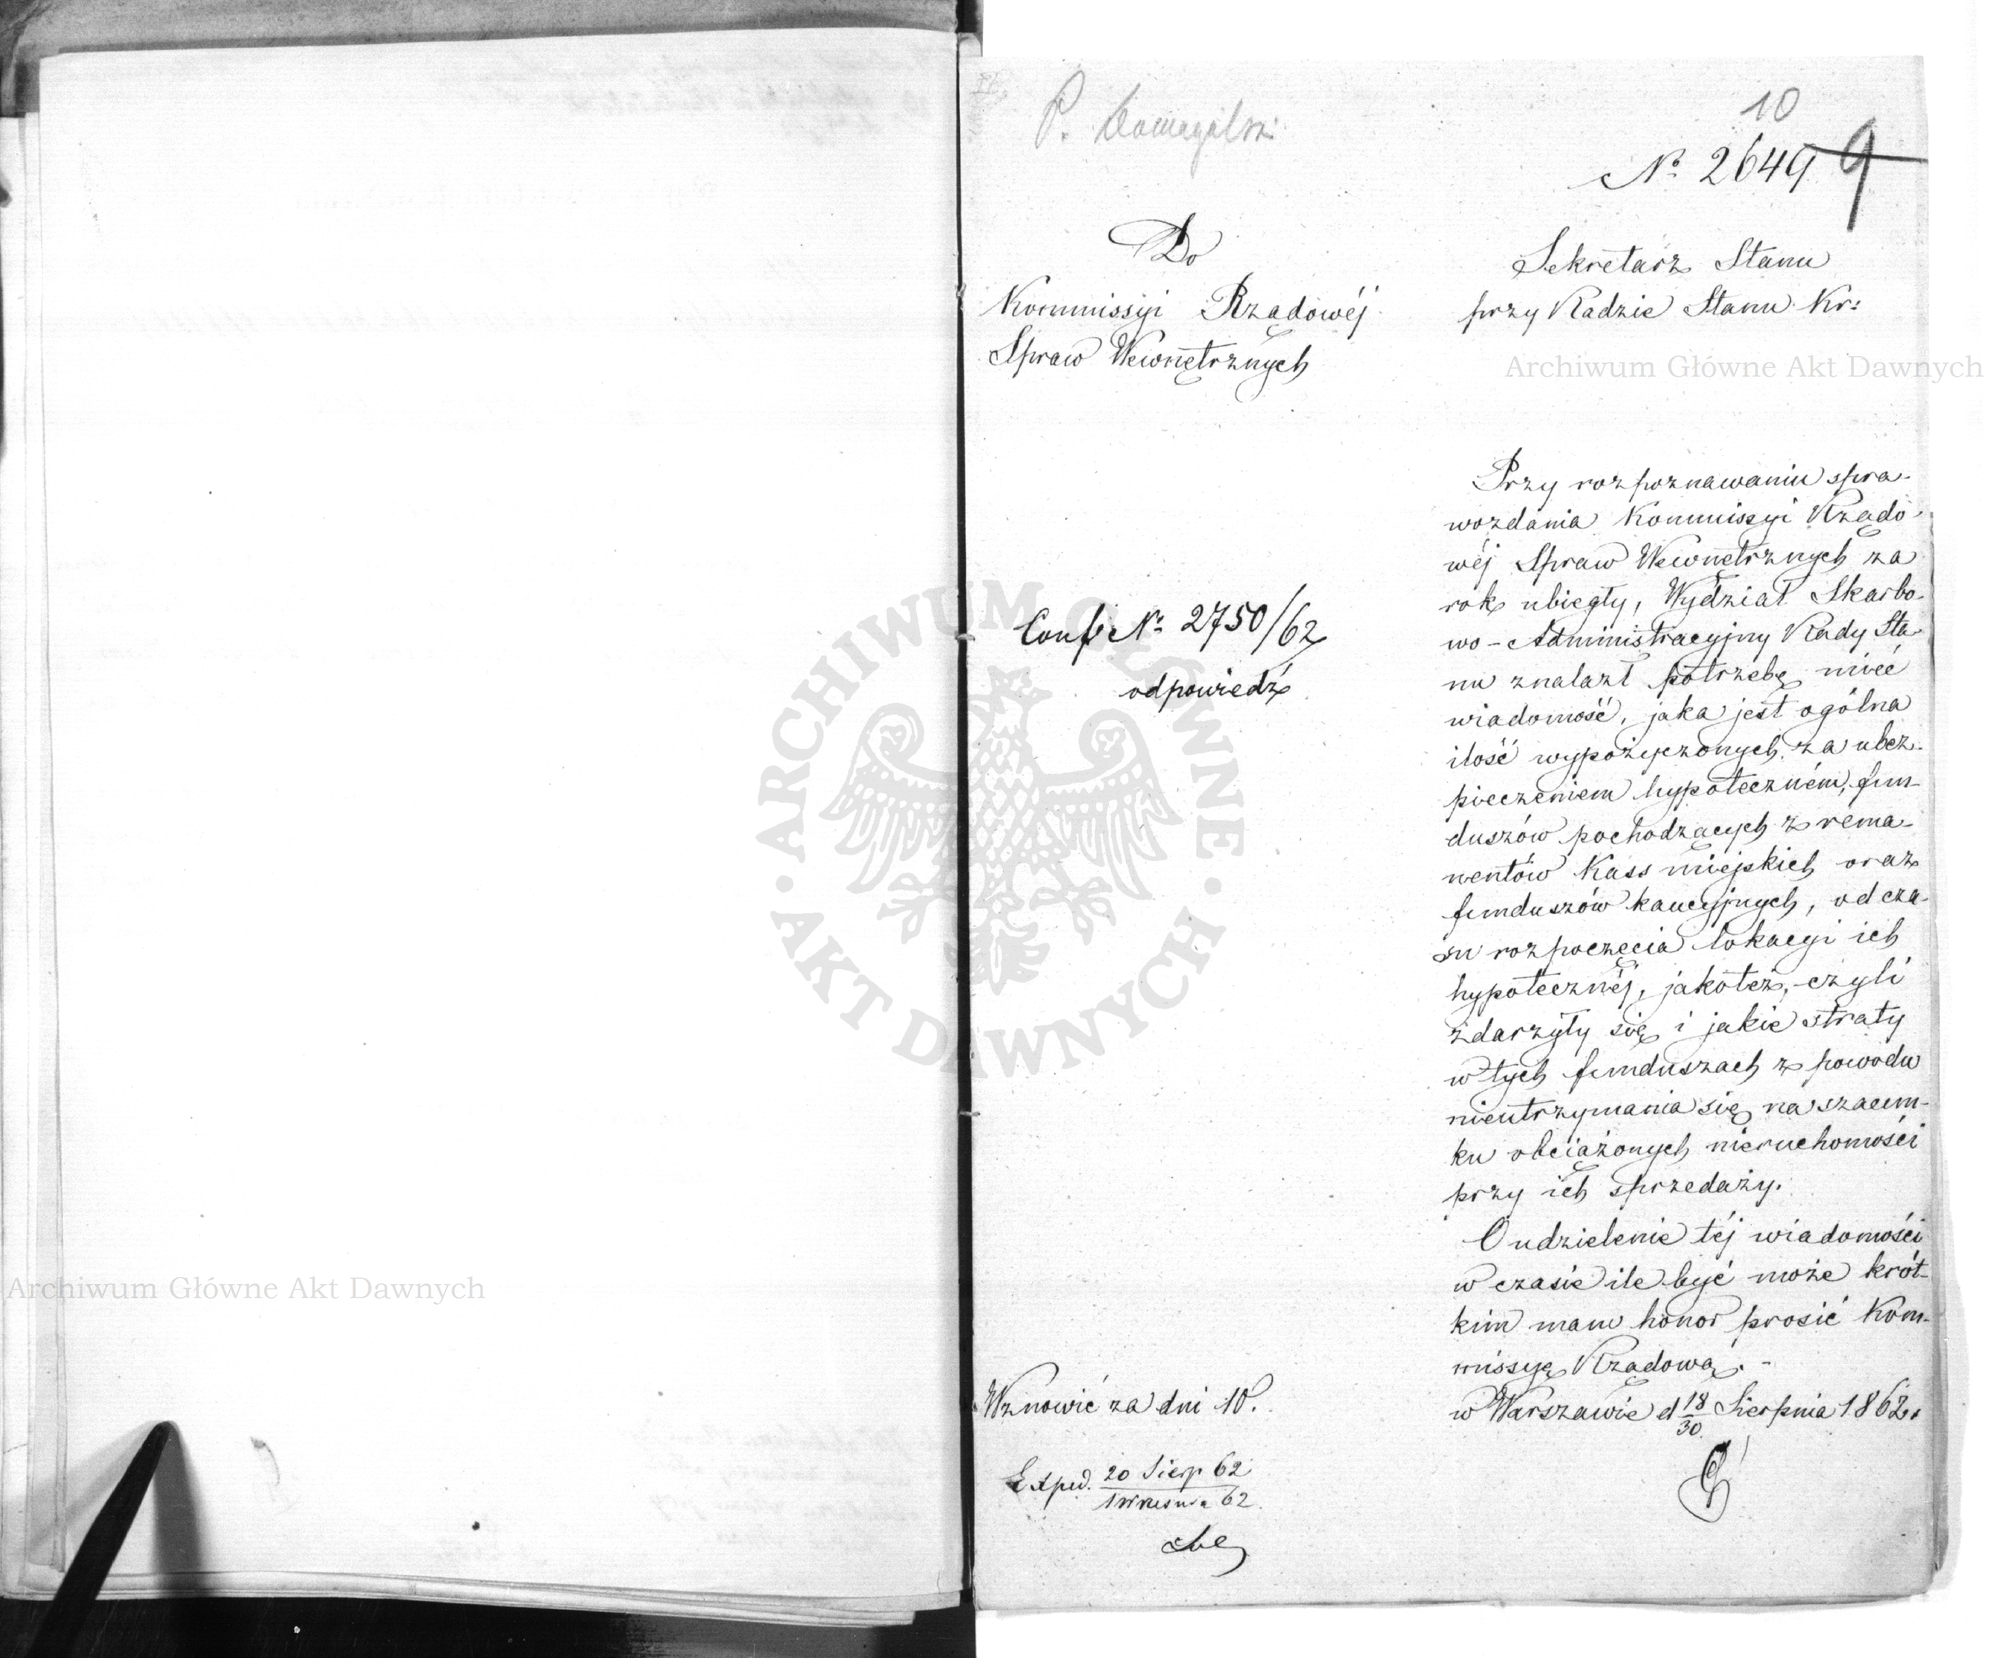 P. Domagalski
10
№ 2649
9
Do
Kommissyi Rządowéj
Spraw Wewnętrznych
Sekretarz Stanu
przy Radzie Stanu Kr:
Archiwum Główne Akt Dawnych
Przy rozpoznawaniu spra-
wozdania Kommissyi Rządo-
wéj Spraw Wewnętrznych za
rok ubiegły, Wydział Skarbo-
wo-Administracyjny Rady Sta-
nu znalazł potrzebę mieć
wiadomość, jaka jest ogólna
ilość wypożyczonych, za ubez-
pieczeniem hypoteczném, fun-
duszów pochodzących z rema-
nentów Kass miejskich oraz
funduszów kaucyjnych, od cza-
su rozpoczęcia lokacyi ich
hypotecznéj, jakoteż, czyli
zdarzyły się i jakie straty
w tych funduszach z powodu
nieutrzymania się na szacun-
ku obciążonych nieruchomości
przy ich sprzedaży.
O udzielenie téj wiadomości
w czasie ile być może krót-
kim mam honor prosić Kom-
missyę Rządową.-
w Warszawie d 18/30 Sierpnia 1862.
Conf № 2750/62
odpowiedź
Wznowić za dni 10.
Exped. 20 Sierp 62
1 Września 62.
ARCHIWUM GŁÓWNE
AKT DAWNYCH
Archiwum Główne Akt Dawnych